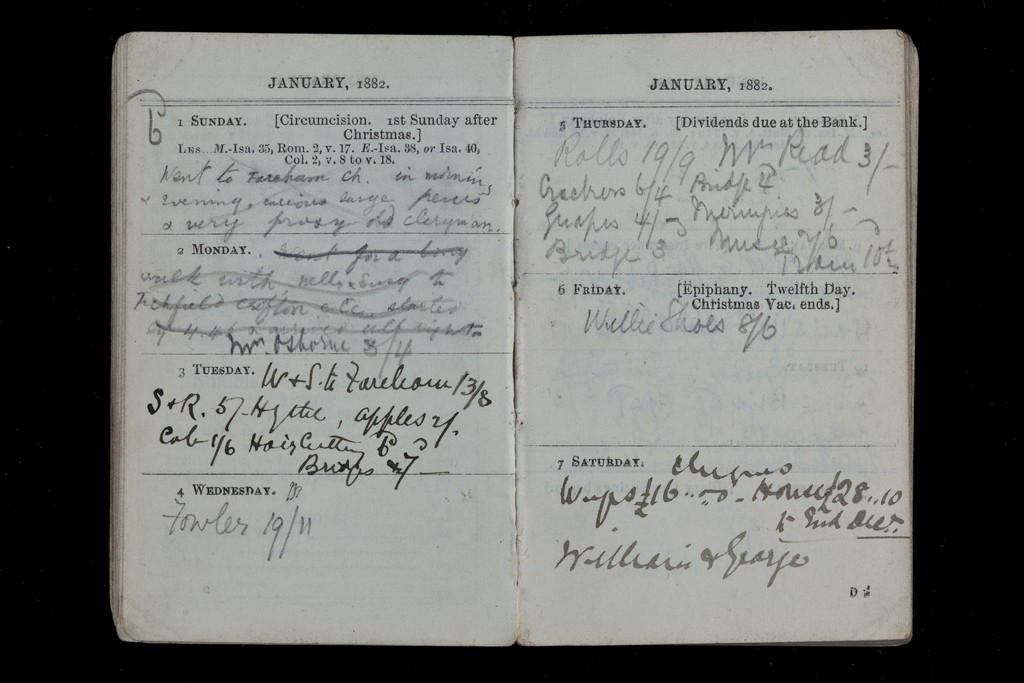 JANUARY, 1882.
1 SUNDAY. [Circumcision. 1st Sunday after
Christmas.]
LES. M.-Isa. 35, Rom. 2, v. 17. E.-Isa. 38, or Isa. 40,
Col. 2, v. 8 to v. 18.
Went to Fareham Ch. in morning
& evening, large
& very prosy old clergyman.
2 MONDAY. went for a long
walk with nells & Susy to
Titchfield Crofton etc. started
at & arrived
Mr. Osborne 3/4
3 TUESDAY. W & S. to Fareham 13/8
S & R. 5/- Hythe, apples 2/-
Cab 1/6 Hair Cutting
Bridge
4 WEDNESDAY.
Fowler 19/11
JANUARY, 1882.
5 THURSDAY. [Dividends due at the Bank.]
Rolls 19/9 Mr Read 3/-
Crackers 6/4 Bridge
Grapes 4/- 3/-
Bridge 3 Music 7/6
Train
6 FRIDAY. [Epiphany. Twelfth Day.
Christmas Vac. ends.]
Willie Shoes 8/6
7 SATURDAY. Cheques
Wages £16 House £28..10
to End Decr.
William & George
D 2